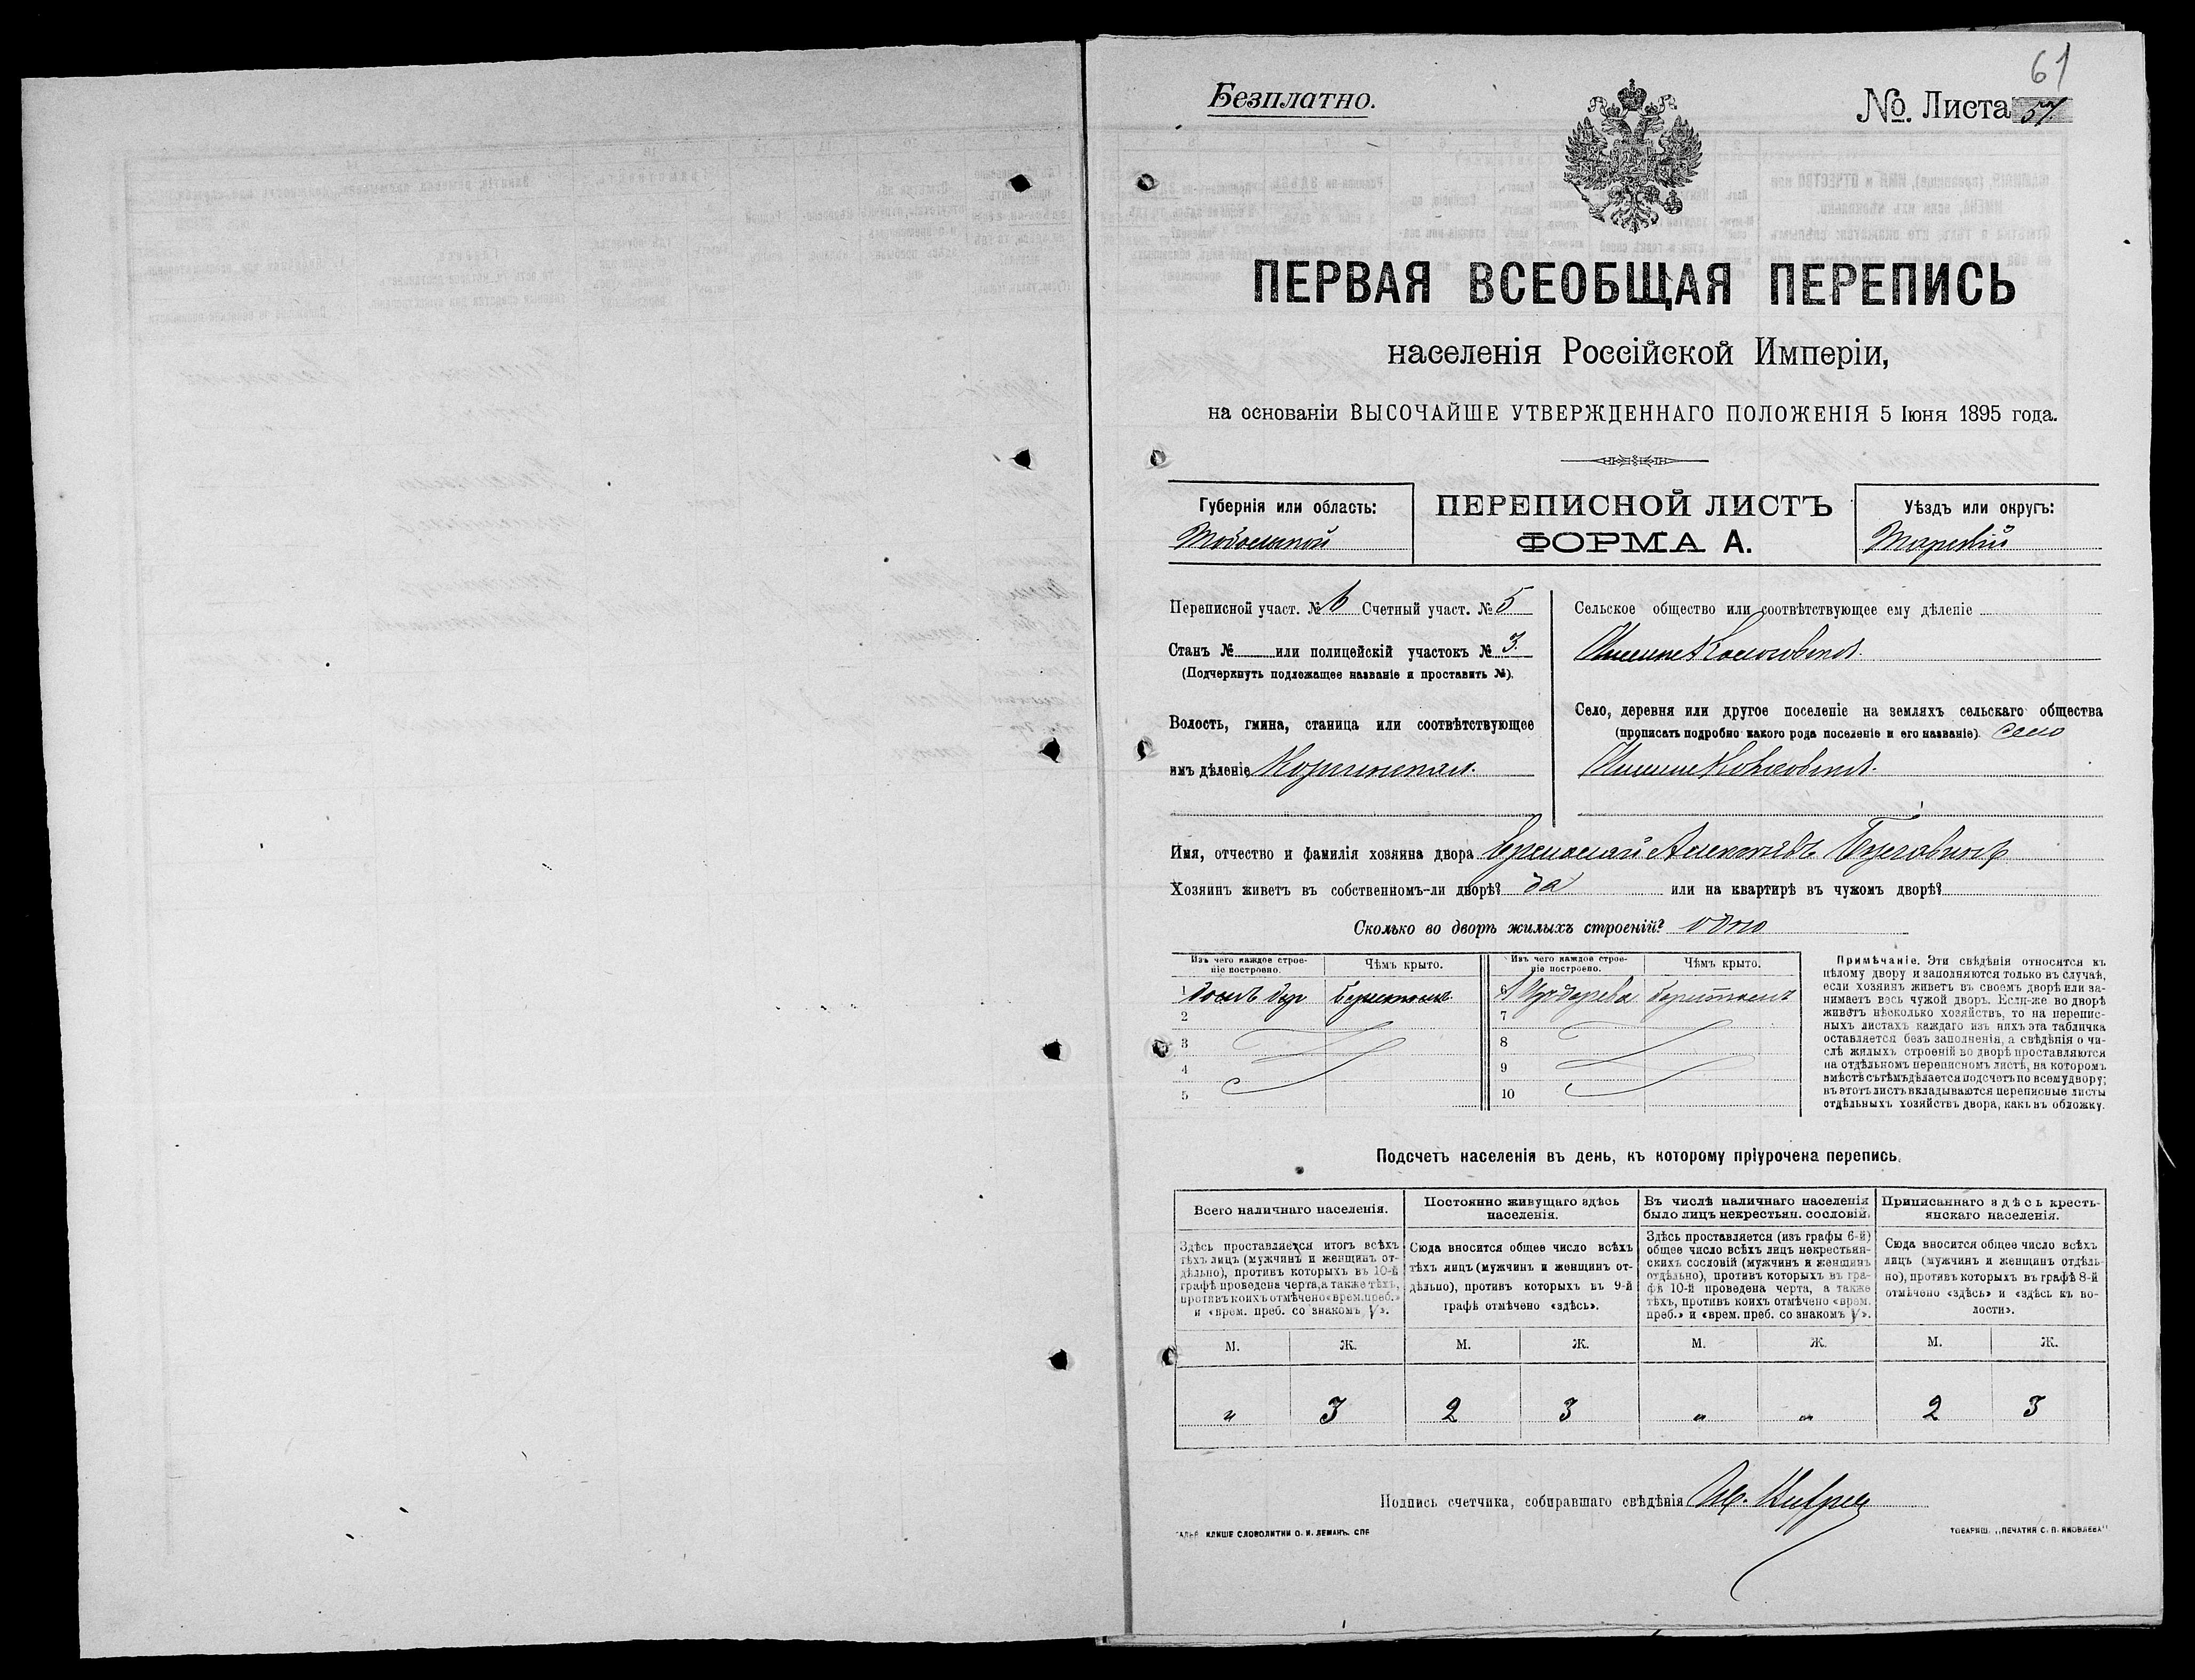 61
Безплатно.
№. Листа 57.
ПЕРВАЯ ВСЕОБЩАЯ ПЕРЕПИСЬ
населенія Россійской Имперіи,
на основаніи ВЫСОЧАЙШЕ УТВЕРЖДЕННАГО ПОЛОЖЕНІЯ 5 Іюня 1895 года.
Губернія или область:
Тобольской
ПЕРЕПИСНОЙ ЛИСТЪ
ФОРМА А.
Уѣздъ или округъ:
Тарскій
Переписной участ. № 6 Счетный участ. № 5
Станъ № или полицейскій участокъ № 3.
(Подчеркнуть подлежащее названіе и проставить №).
Волость, гмина, станица или соотвѣтствующее
имъ дѣленіе
Сельское общество или соотвѣтствующее ему дѣленіе
Село, деревня или другое поселеніе на земляхъ сельскаго общества
(прописать подробно какого рода поселеніе и его названіе) село
Имя, отчество и фамилія хозяина двора
Хозяинъ живетъ въ собственномъ-ли дворѣ? да или на квартирѣ въ чужомъ дворѣ?
Сколько во дворѣ жилыхъ строеній? одно
Изъ чего каждое строеніе построено.
Чѣмъ крыто.
Изъ чего каждое строеніе построено.
Чѣмъ крыто.
1
2
3
4
5
6
7
8
9
10
Примѣчаніе. Эти свѣдѣнія относятся къ
цѣлому двору и заполняются только въ случаѣ,
если хозяинъ живетъ въ своемъ дворѣ или за-
нимаетъ весь чужой дворъ. Если-же во дворѣ
живетъ нѣсколько хозяйствъ, то на перепис-
ныхъ листахъ каждаго изъ нихъ эта табличка
оставляется безъ заполненія, а свѣдѣнія о чи-
слѣ жилыхъ строеній во дворѣ проставляются
на отдѣльномъ переписномъ листѣ, на которомъ
вмѣстѣ съ тѣмъ дѣлается подсчетъ по всему двору;
въ этотъ листъ вкладываются переписные листы
отдѣльныхъ хозяйствъ двора, какъ въ обложку.
Подсчетъ населенія въ день, къ которому пріурочена перепись.
Всего наличнаго населенія.
Здѣсь проставляется итогъ всѣхъ
тѣхъ лицъ (мужчинъ и женщинъ от-
дѣльно), противъ которыхъ въ 10-й
графѣ проведена черта, а также тѣхъ,
противъ коихъ отмѣчено «врем. преб.»
и «врем. преб. со знакомъ V».
Постоянно живущаго здѣсь
населенія.
Сюда вносится общее число всѣхъ
тѣхъ лицъ (мужчинъ и женщинъ от-
дѣльно), противъ которыхъ въ 9-й
графѣ отмѣчено «здѣсь».
Въ числѣ наличнаго населенія
было лицъ некрестьян. сословій.
Здѣсь проставляется (изъ графы 6-й)
общее число всѣхъ лицъ некрестьян-
скихъ сословій (мужчинъ и женщинъ
отдѣльно), противъ которыхъ въ гра-
фѣ 10-й проведена черта, а также
тѣхъ, противъ коихъ отмѣчено «врем.
преб.» и «врем. преб. со знакомъ V».
Приписаннаго здѣсь кресть-
янскаго населенія.
Сюда вносится общее число всѣхъ
лицъ (мужчинъ и женщинъ отдѣль-
но), противъ которыхъ въ графѣ 8-й
отмѣчено «здѣсь» и «здѣсь въ во-
лости».
М. Ж. М. Ж. М. Ж. М. Ж.
" 3 2 3 " " 2 3
Подпись счетчика, собиравшаго свѣдѣнія
КЛИШЕ СЛОВОЛИТНИ О. И. ЛЕМАНЪ. СПБ
ТОВАРИЩ. „ПЕЧАТНЯ С. П. ЯКОВЛЕВА"